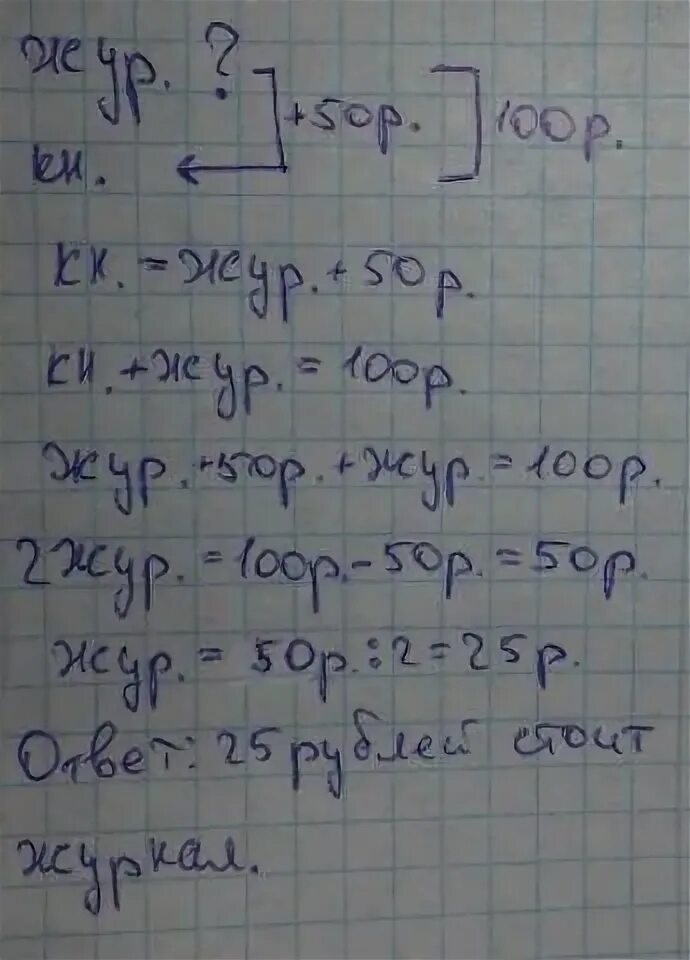 жур. ? +50р. 100р.
кн.
кн. = жур. + 50р.
кн. + жур. = 100р.
жур. +50р. + жур. = 100р.
2 жур. = 100р. - 50р. = 50р.
жур. = 50р. : 2 = 25р.
Ответ: 25 рублей стоит
журнал.